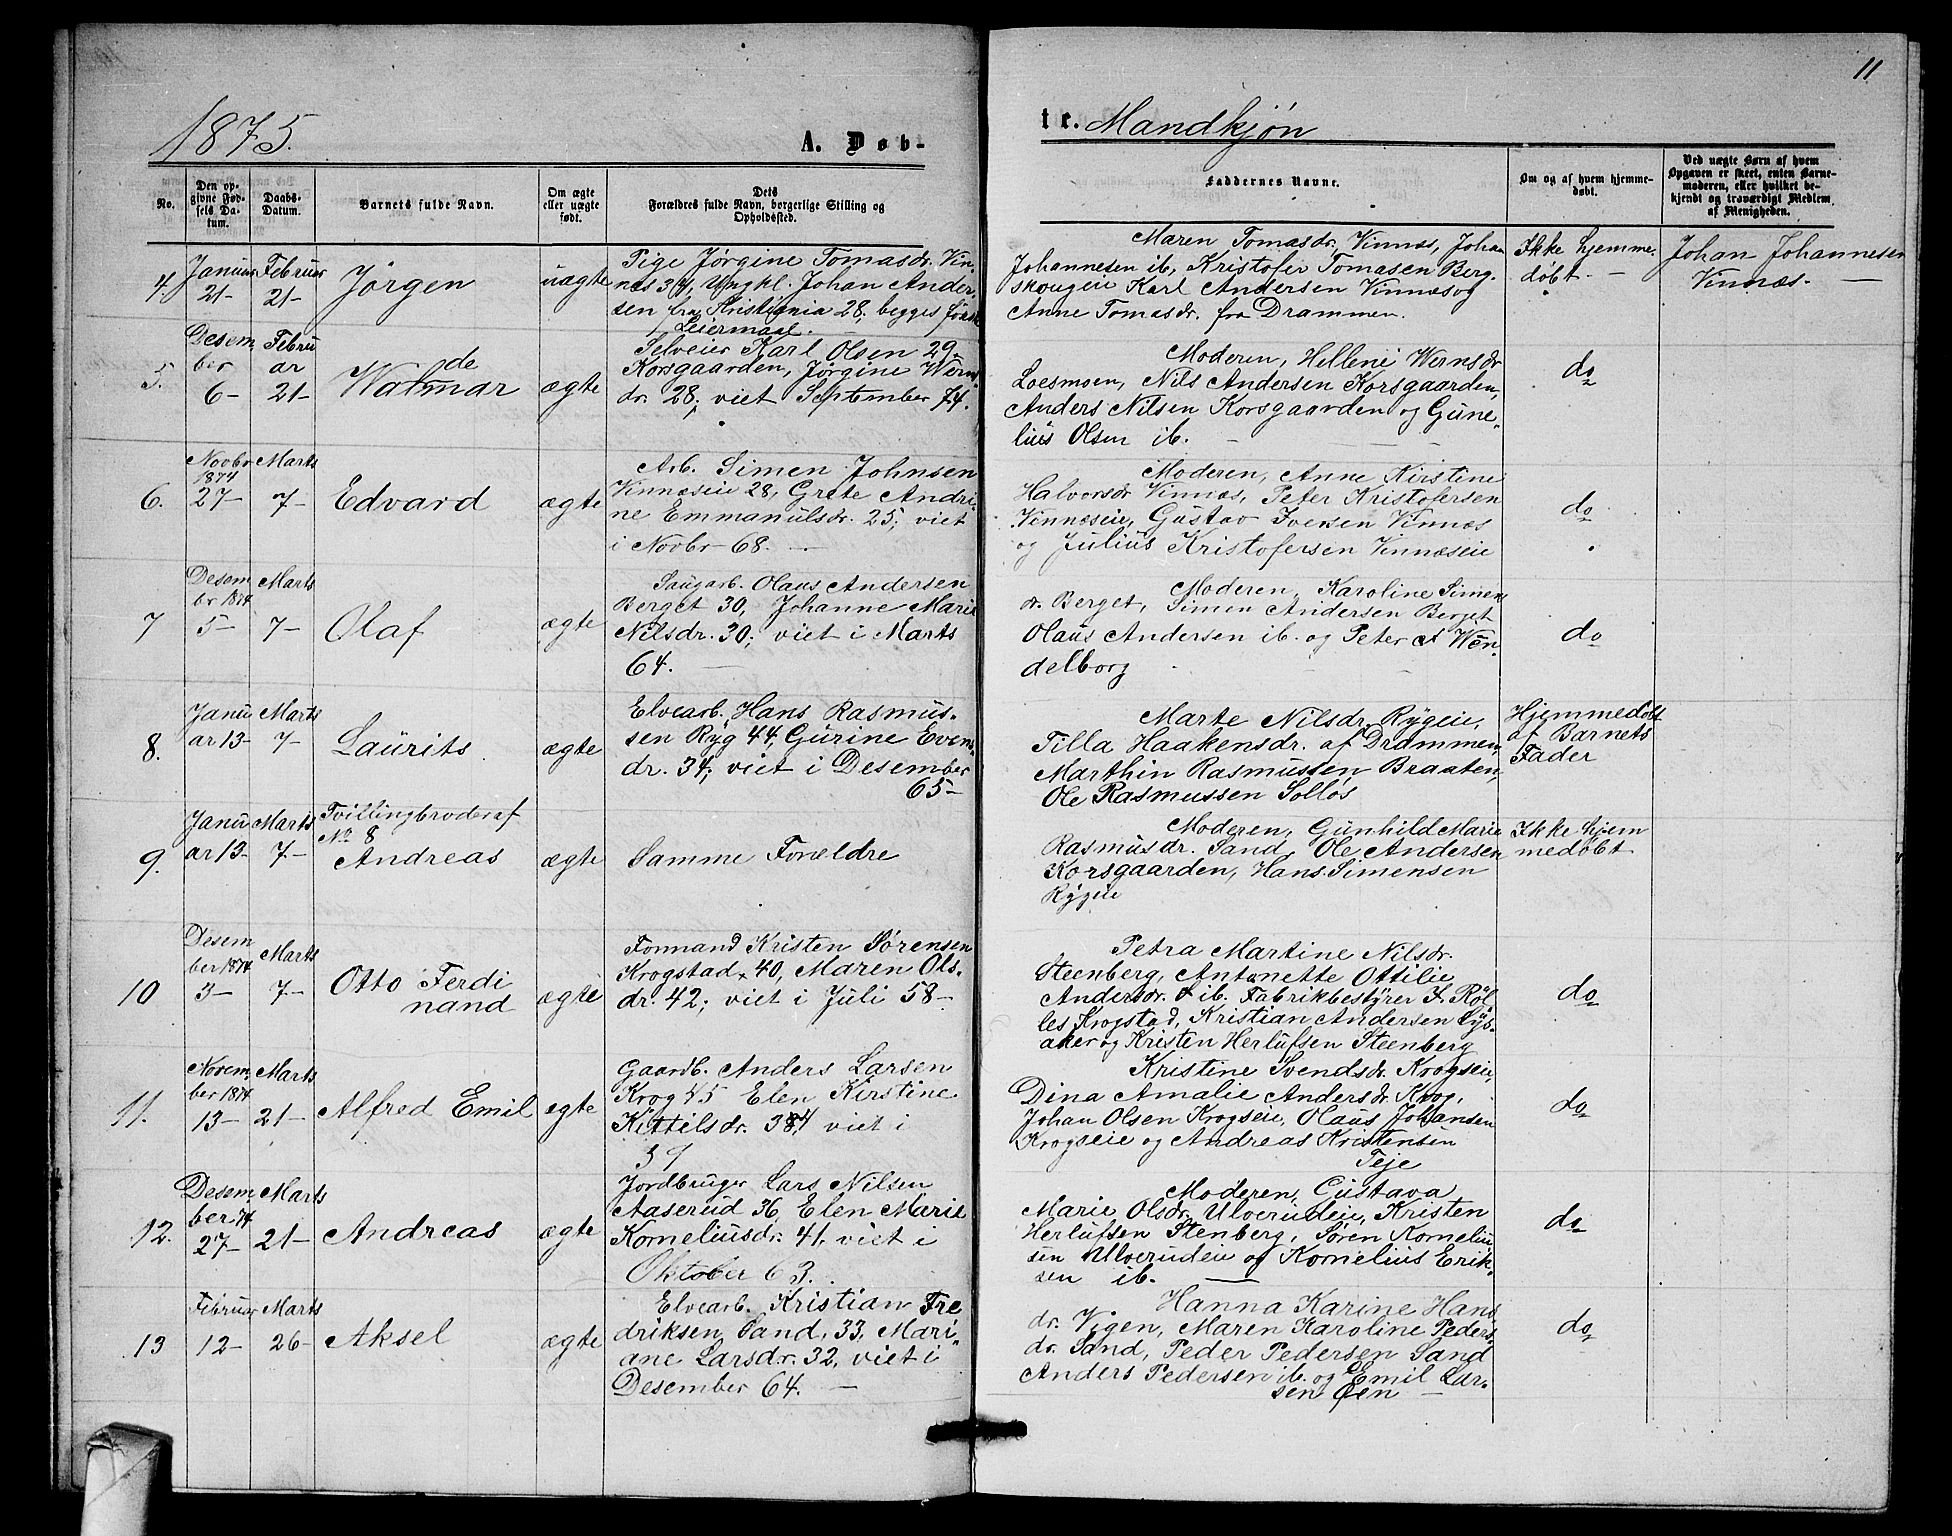 11
1875.
A. Døb-
te. Mandkjøn
No.
Den op-
givne Fød-
sels Da-
tum.
Daabs-
Datum.
Barnets fulde Navn.
Om ægte
eller uægte
født.
Dets
Forældres fulde Navn, borgerlige Stilling og
Opholdssted.
Faddernes Navne.
Om og af hvem hjemme-
døbt.
Ved uægte Børn af hvem
Opgaven er skeet, enten Barne-
moderen, eller hvilket be-
kjendt og troværdigt Medlem
af Menigheden.
4.
Januar
21-
Februar
21-
Jørgen
uægte
Pige Jørgine Tomasdr. Vin-
næs 34, Ungkl. Johan Ander-
sen fra Kristiania 28, begges første
Leiermaal.
Maren Tomasdr. Vinnæs, Johan
Johannesen ib, Kristofer Tomasen Berg-
skougeie Karl Andersen Vinnæs og
Anne Tomasdr. fra Drammen.
Ikke hjemme-
døbt.
Johan Johannesen
Vinnæs.
5.
Desem
ber
6-
Febru
ar
21-
de
Walmar
ægte
Selveier Karl Olsen 29-
Korsgaarden, Jørgine Werns-
dr. 28; viet September 74.
Moderen, Hellene Wernsdr
Loesmoen, Nils Andersen Korsgaarden,
Anders Nilsen Korsgaarden og Gune-
lius Olsen ib.
do
6.
Novbr
1874
27-
Marts
7-
Edvard
ægte
Arb. Simen Johnsen
Vinnæseie 28, Grete Andri-
ne Emmanulsdr. 25; viet
i Novbr 68.
Moderen, Anne Kirstine
Halvorsdr Vinnæs, Peter Kristofersen
Vinnæseie, Gustav Iversen Vinnæs
og Julius Kristofersen Vinnæseie
do
7
Desem
br 1874
5-
Marts
7-
Olaf
ægte
Saugarb. Olaus Andersen
Berget 30, Johanne Marie
Nilsdr. 30; viet i Marts
64.
Moderen, Karoline Simens
dr. Berget, Simen Andersen Berget
Olaus Andersen ib. og Peter A Wen-
delborg
do
8.
Janu
ar 13-
Marts
7-
Laurits
ægte
Elvearb. Hans Rasmus-
sen Ryg 44, Gurine Evens-
dr. 34; viet i Desember
65-
Marte Nilsdr. Rygeie,
Tilla Haakensdr. af Drammen,
Marthin Rasmussen Braaten,
Ole Rasmussen Solløs
Hjemmedøbt
af Barnets
Fader
9.
Janu
ar 13-
Marts
7-
Tvillingbroder af
No 8
Andreas
ægte
Samme Forældre
Moderen, Gunhild Marie
Rasmusdr. Sand, Ole Andersen
Korsgaarden, Hans Simensen
Rygeie
Ikke hjem
medøbt
10
Desem
ber 1874
3-
Marts
7-
Otto Ferdi
nand
ægte
Formand Kristen Sørensen
Krogstad 40, Maren Ols-
dr. 42; viet i Juli 58-
Petra Martine Nilsdr.
Steenberg, Antonette Ottilie
Andersdr. ib. Fabrikbestyrer F. Røl
les Krogstad, Kristian Andersen Lys-
aker og Kristen Herlufsen Steenberg
do
11.
Novem
ber 1874
13-
Marts
21-
Alfred Emil
ægte
Gaardb. Anders Larsen
Krog 45 Elen Kirstine
Kittilsdr. 384, viet i
57
Kristine Svendsdr. Krogseie,
Dina Amalie Andersdr. Krog,
Johan Olsen Krogseie, Olaus Johansen
Krogseie og Andreas Kristensen
Teje
do
12.
Desem-
ber 74
27-
Marts
21-
Andreas
ægte
Jordbruger Lars Nilsen
Aaserud 36, Elen Marie
Korneliusdr. 41, viet i
Oktober 63.
Moderen, Gustava
Marie Olsdr. Ulverudeie, Kristen
Herlufsen Stenberg, Søren Korneliu-
sen Ulverudeie og Kornelius Erik-
sen ib.
do
13
Februar
12-
Marts
26-
Aksel
ægte
Elvearb. Kristian Fre
driksen Sand, 33, Mari-
ane Larsdr. 32, viet i
Desember 64.
Hanna Karine Hans
dr. Vigen, Maren Karoline Peders-
dr. Sand, Peder Pedersen Sand
Anders Pedersen ib. og Emil Lar-
sen Øen
do